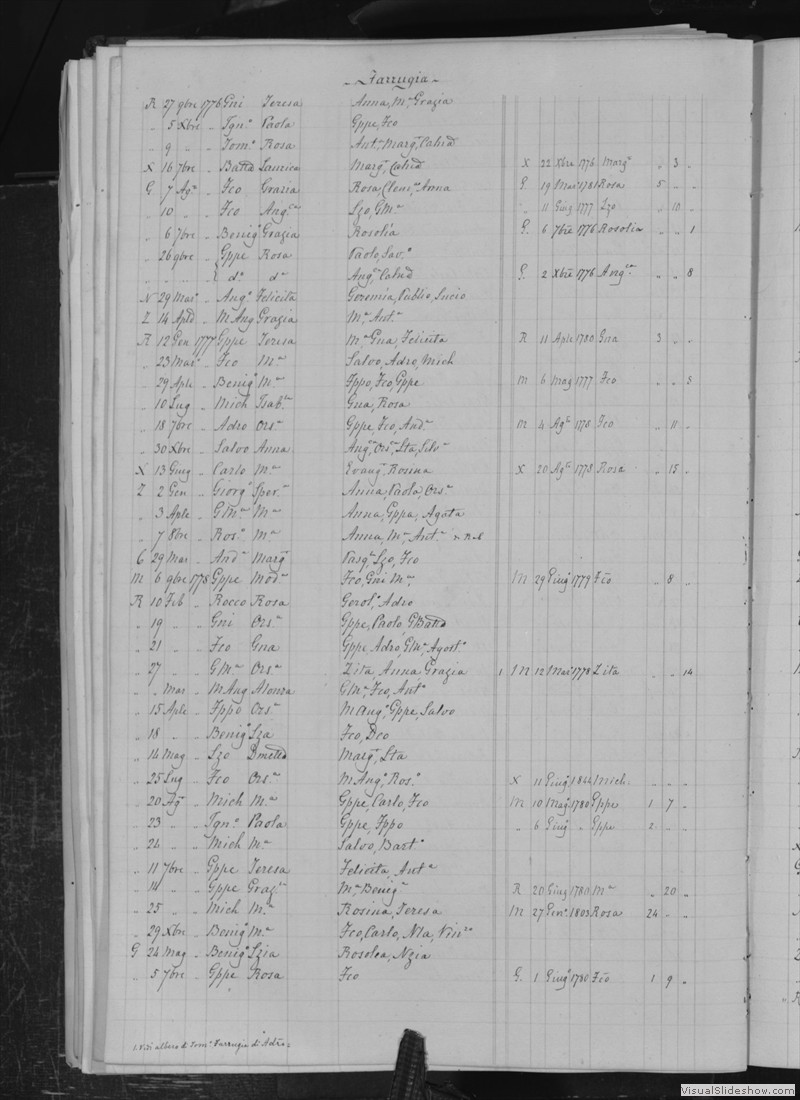 Farrugia
R 27 9bre 1776 Gni Teresa Anna, Mª Grazia
„ 5 Xbre „ Ign.º Paola Gppe, Fco
„ 9 „ „ Tom.º Rosa Ant.ª Margª, Cahnª
X 16 7bre „ Batta Marg.ª X 22 Xbre 1776 Margª „ 3 „
G 7 Ag.º „ Fco Grazia Rosa, Clem.ª, Anna G. 19 Mar 1781 Rosa 5 „ „
„ 10 „ „ Fco Ang.ca Lzo, GMª „ 11 Giug 1777 Lzo „ 10 „
„ 6 7bre „ Benig.º Grazia Rosolia G. 6 7bre 1776 Rosolia „ „ 1
„ 26 9bre „ Gppe Rosa Paolo, Sav.º
„ „ „ „ dº dª Ang.ª G. 2 Xbre 1776 Ang.ca „ „ 8
N 29 Mar. „ Ang.º Felicita Geremia, Publio, Lucio
Z 14 Aple „ MAng Grazia Mª, Ant.ª
R 12 Gen 1777 Gppe Teresa Mª, Gna, Felicita R 11 Aple 1780 Gna 3 „ „
„ 23 Mar „ Fco Mª Salvo, Adro, Mich
„ 29 Aple „ Benig.º Mª Fppo, Fco, Gppe M 6 Mag 1777 Fco „ „ 5
„ 10 Lug „ Mich Isab.la Gna, Rosa
„ 18 7bre „ Adro Ors.ª Gppe, Fco, And.ª M 4 Ag.º 1778 Fco „ 11 „
„ 30 Xbre „ Salvo Anna Ang.ca, Ors.ª, Lta, Silv.ª
X 13 Giug „ Carlo Mª Evang.ª, Rosina X 20 Ag.º 1778 Rosa „ 15 „
Z 2 Gen „ Giorg.º Sper.ª Anna, Paola, Ors.ª
„ 3 Aple „ GMª Mª Anna, Gppa, Agata
„ 7 8bre „ Ros.º Mª Anna, Mª, Ant.ª
G 29 Mar „ And.ª Marg.ª Pasq.e, Lzo, Fco
M 6 9bre 1778 Gppe Mod.ª Fco, Gni Mª M 29 Giug 1779 Fco „ 8 „
R 10 Feb „ Rocco Rosa Gerol.º, Adro
„ 19 „ „ Gni Ors.ª Gppe, Paolo, GBatta
„ 21 „ „ Fco Gna Gppe, Adro, GMª, Agost.º
„ 27 „ GMª Ors.ª Zita, Anna, Grazia 1 M 12 Mar 1778 Zita „ „ 14
„ „ Mar „ MAng Alonza GMª, Fco, Ant.º
„ 15 Aple „ Fppo Ors.ª MAng.º, Gppe, Salvo
„ 18 „ „ Benig.º Lza Fco, Dco
„ 14 Mag „ Lzo Marg.ª, Lta
„ 25 Lug „ Fco Ors.ª MAng.º, Ros.º X 11 Giug 1844 Mich. „ „ „
„ 20 Ag.º „ Mich Mª Gppe, Carlo, Fco M 10 Mag.º 1780 Gppe 1 7 „
„ 23 „ „ Ign.º Paola Gppe, Fppo „ 6 Giug „ Gppe 2 „ „
„ 24 „ „ Mich Mª Salvo, Bart.º
„ 11 7bre „ Gppe Teresa Felicita, Ant.ª
„ 14 „ „ Gppe Graz.ª Mª, Benig.ª R 20 Giug 1780 Mª „ 20 „
„ 25 „ „ Mich Mª Rosina, Teresa M 27 Gen.º 1803 Rosa 24 „ „
„ 29 Xbre „ Benig.º Mª Fco, Carlo, Nla, Vin.zo
G 24 Mag „ Benig.º Lzia Rosolea, Nzia
„ 5 7bre „ Gppe Rosa Fco G. 1 Giug.º 1780 Fco 1 9 „
1. Vedi albero di Tom.º Farrugia di Adro:
VisualSlideshow.com